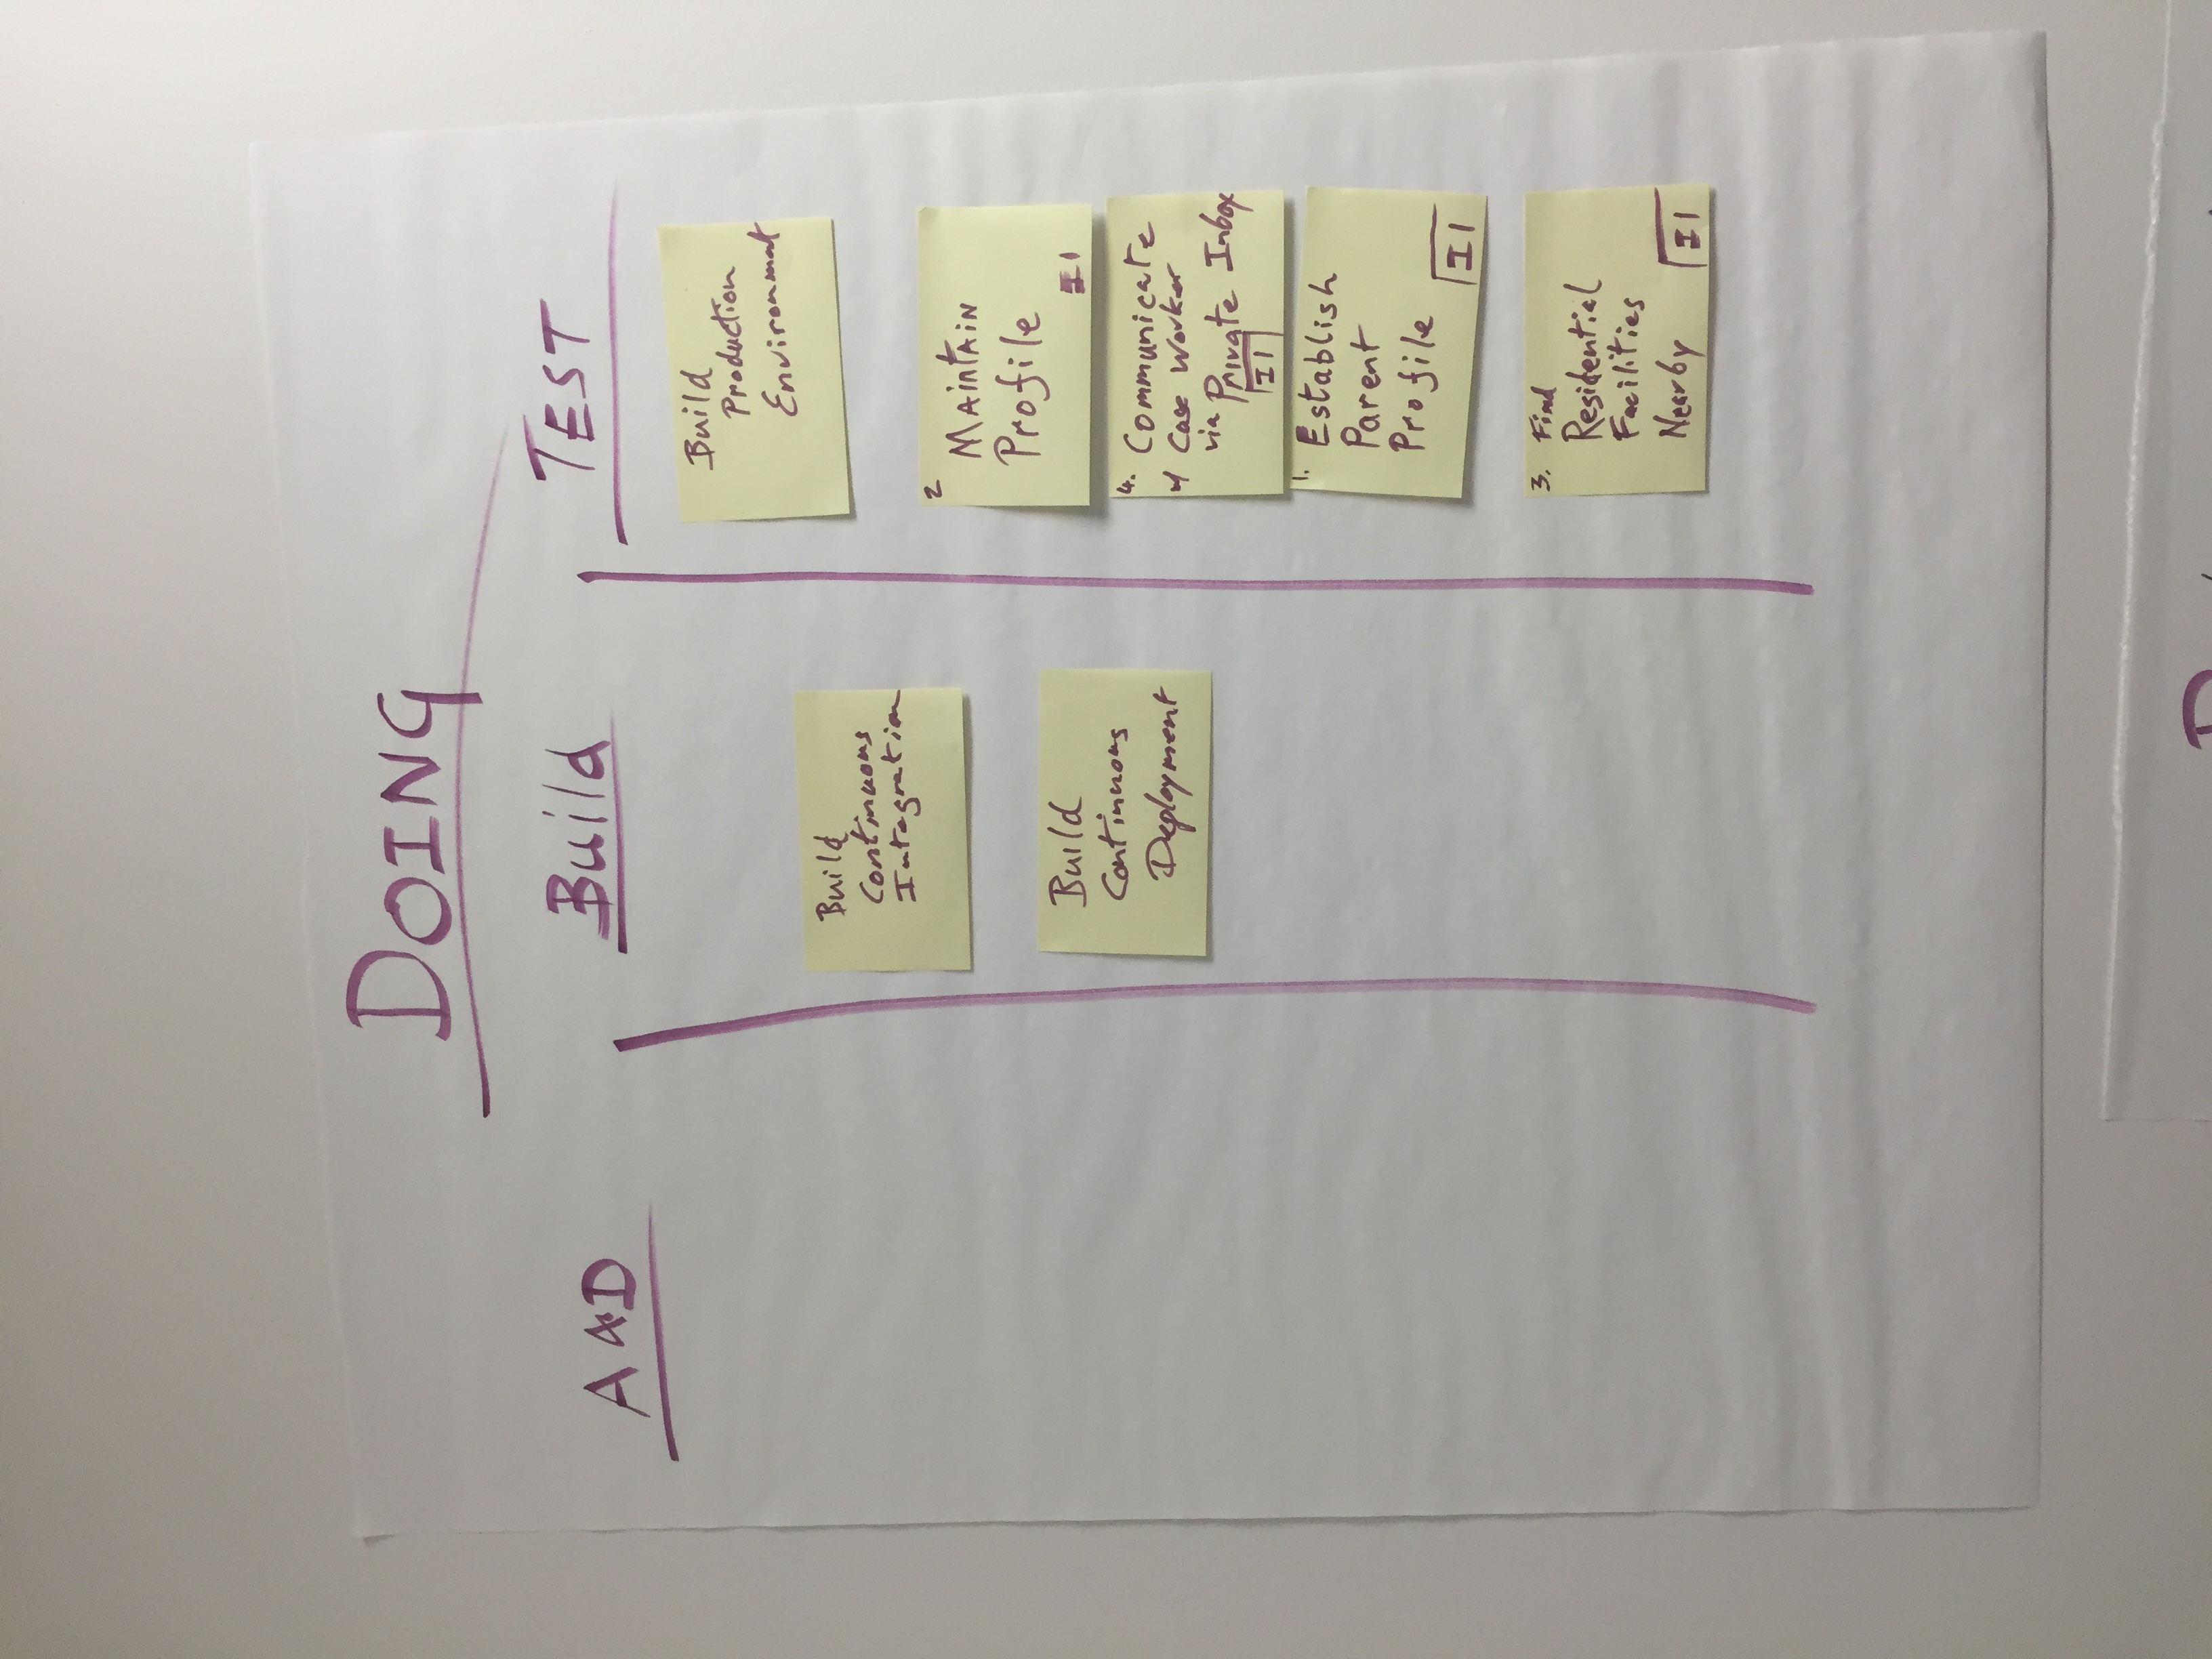 DOING
A&D
Build
TEST
Build
Continuous
Integration
Build
Continuous
Deployment
Build
Production
Environment
2
MAintAiN
Profile
I1
4. Communicate
w/ Case Worker
via Private Inbox
I1
1. Establish
Parent
Profile
I1
3. Find
Residential
Facilities
Nearby
I1